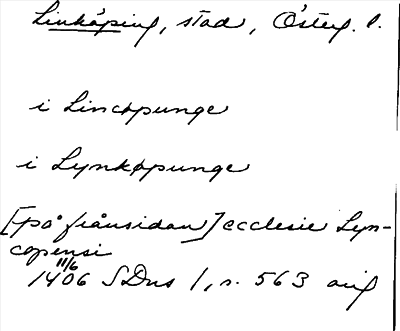 Linköping, stad, Österg. l.
i Lincopunge
i Lynkøpunge
[på frånsidan] ecclesie Lyn-
copensi
11/6
1406 SDns 1, s. 563 orig